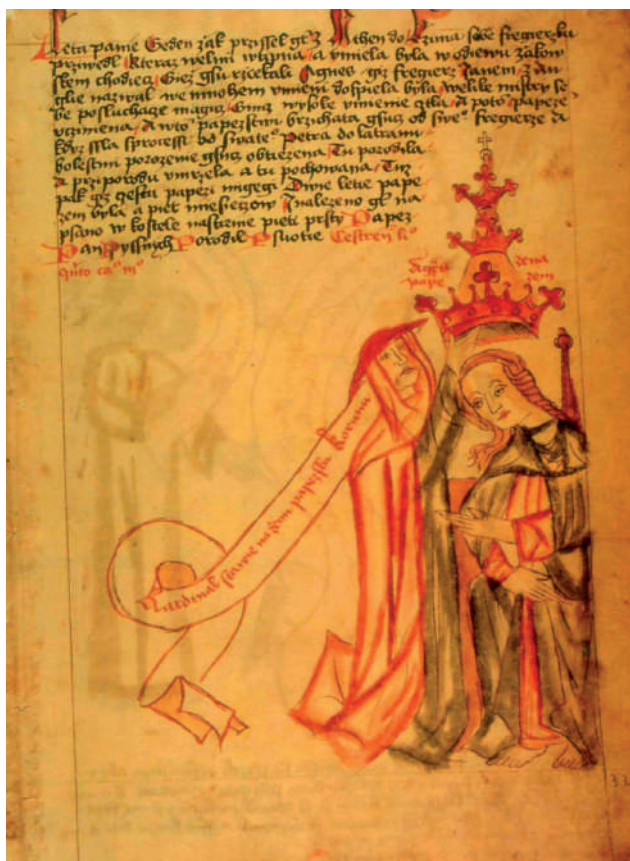 Leta panie Geden zak przissel gt z Athen do Rzima sobe fregierzku
przwedl kteraz welmi wtipna a vmiela byla w odiewu zakow
skem chodieci Giez gsu rzieckali Agnes gz fregierz Janem z An
glie nazwal we mnohem vmieni dospiela byla welike mistry se
be posluchacze magicz Gimz wysoke vmienie cztla A poto papeze
vczinena A wto papezstwi brzichata gsucz od sweo fregierze a
kdyz ssla sprocessi bo swateo Petra do latrami
bolestmi porozenie gsucz obtiezena Tu porodila
a przi porodu vmrzela a tu pochowana Tuz
pak gz gestu papezi migegi Dwie letie pape
zem byla a piet miesieczow Nalezeno gt na
psano w kostele nastieme piete prsty Papez
Pan Pyssnych Porodil Psuotie Cestren li
qinto cao mo
pape dena
dem
Kardinal stawie na zenu papezsku korunu